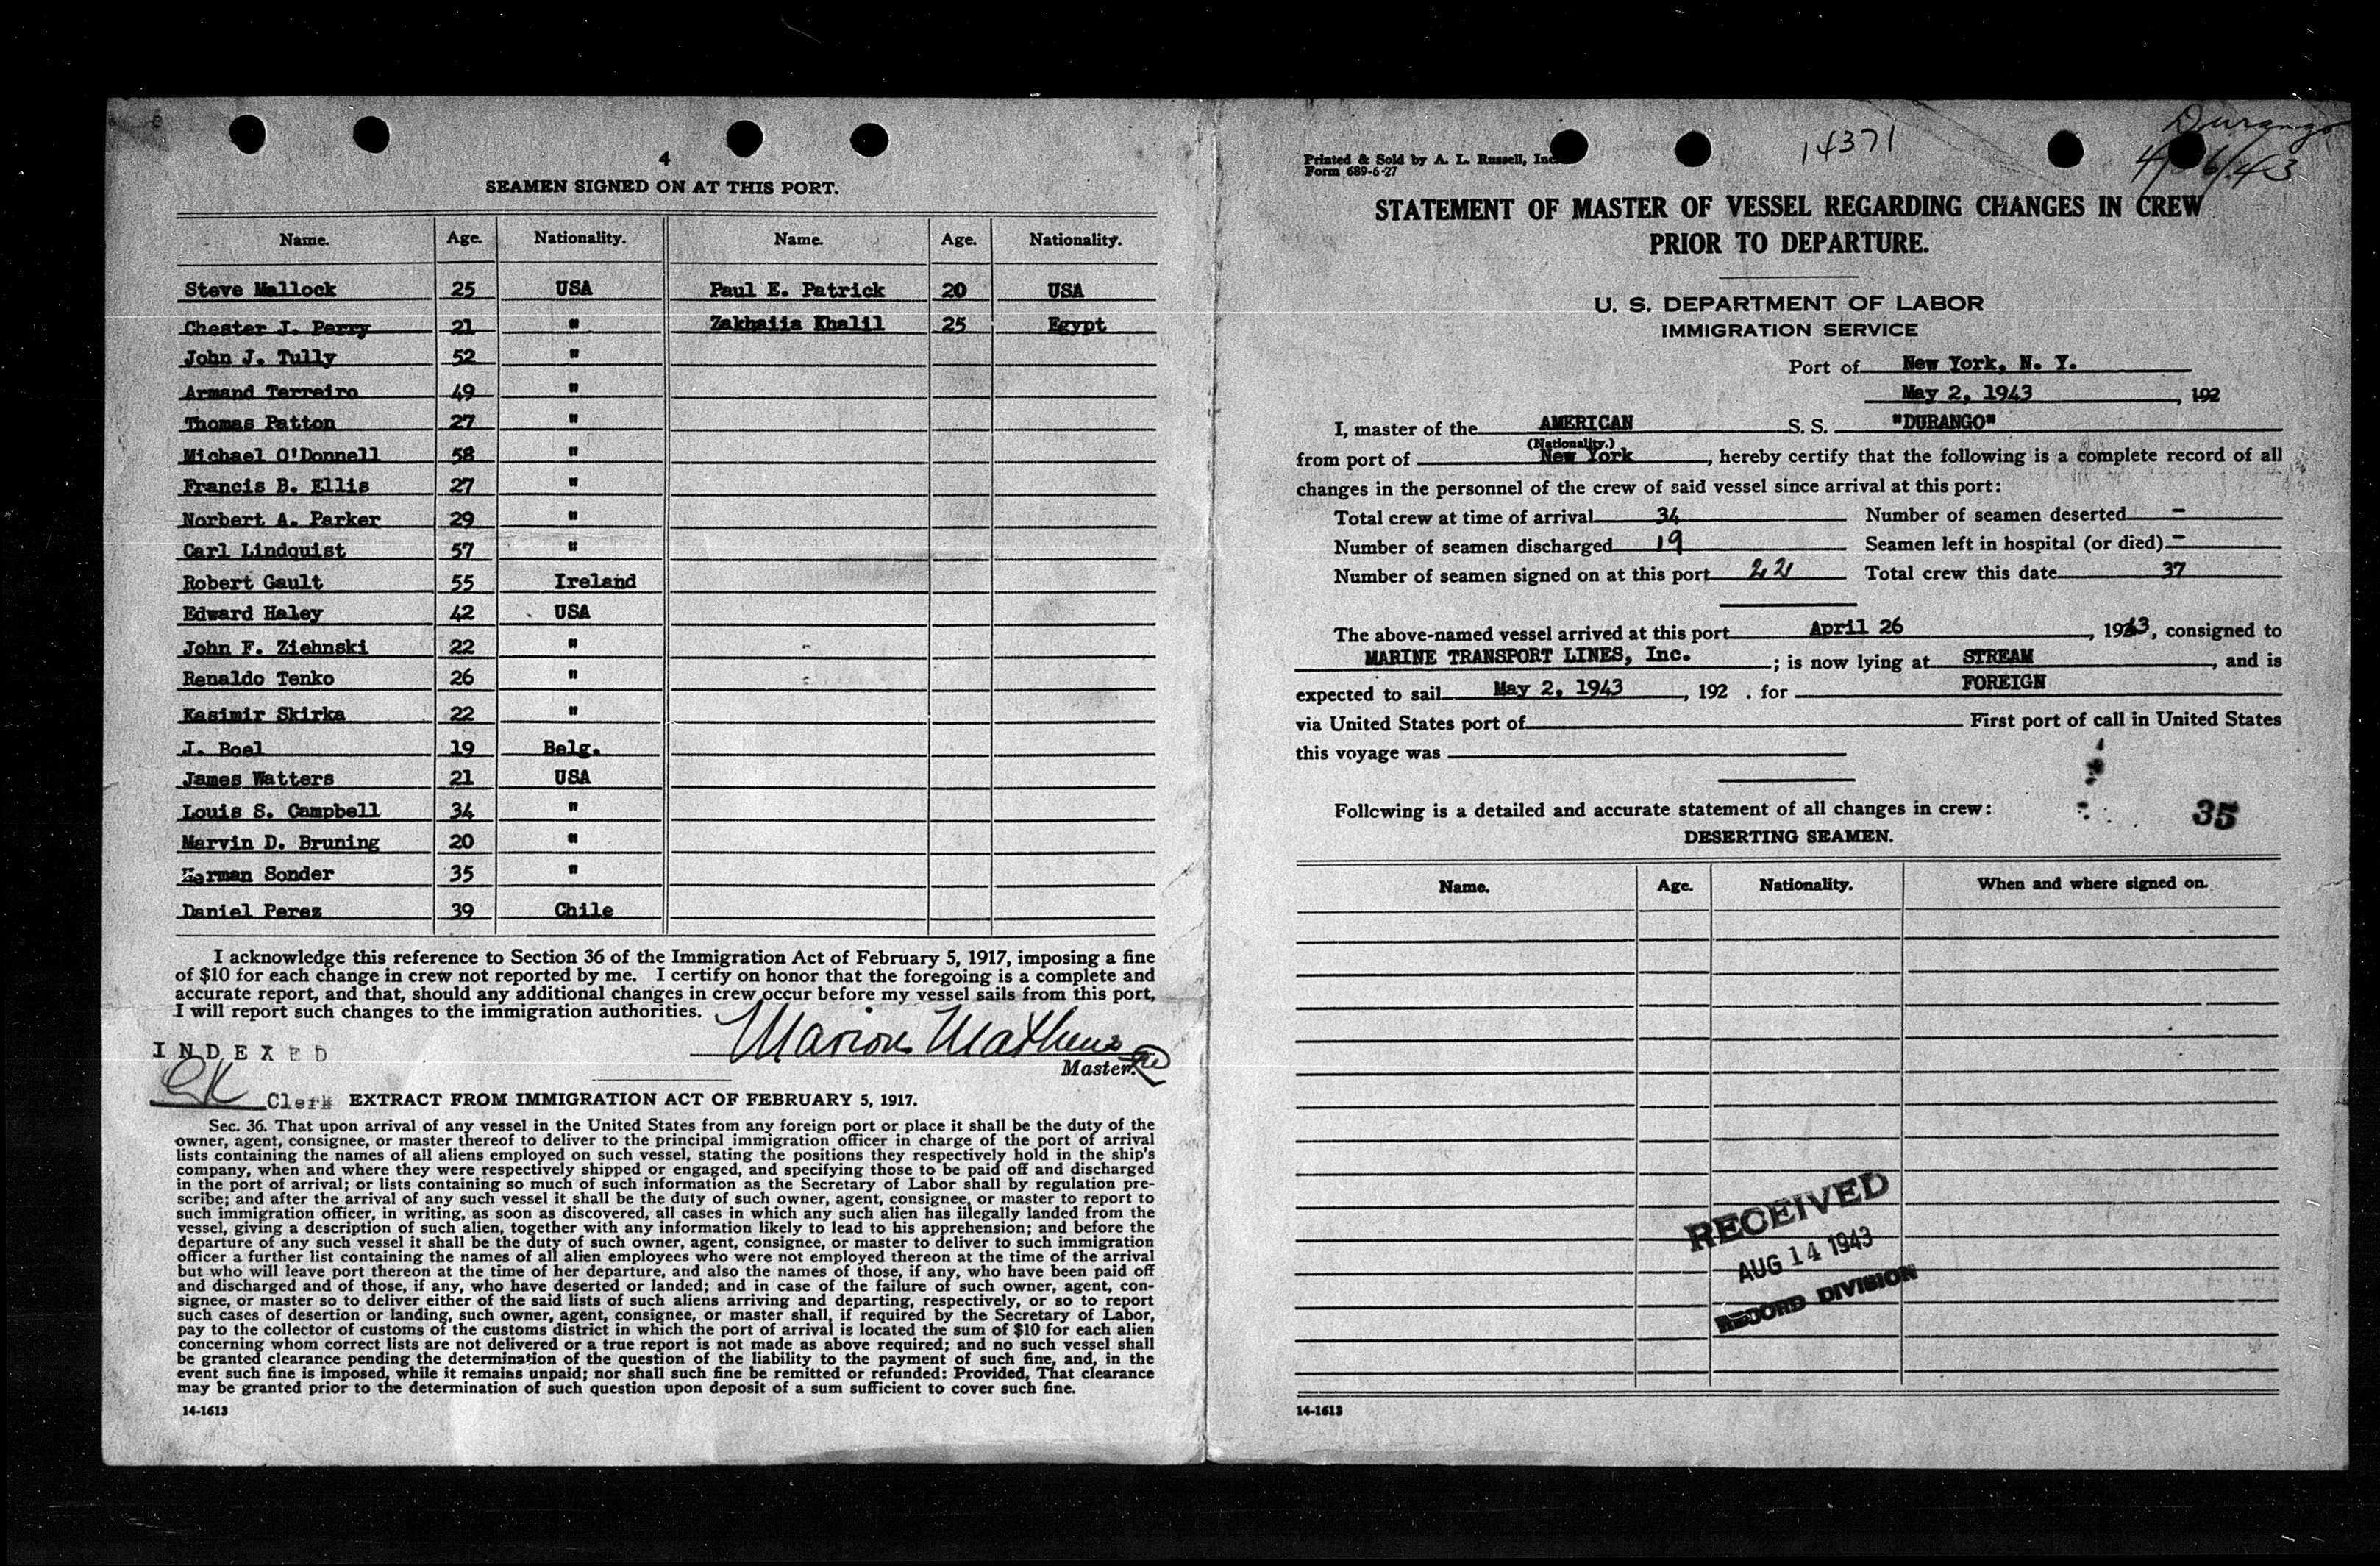 4
SEAMEN SIGNED ON AT THIS PORT.
Name. Age. Nationality. Name. Age. Nationality.
Steve Mallock 25 USA Paul E. Patrick 20 USA
Chester J. Perry 21 " Zakhaiia Khalil 25 Egypt
John J. Tully 52 "
Armand Terreiro 49 "
Thomas Patton 27 "
Michael O'Donnell 58 "
Francis B. Ellis 27 "
Norbert A. Parker 29 "
Carl Lindquist 57 "
Robert Gault 55 Ireland
Edward Haley 42 USA
John F. Ziehnski 22 "
Renaldo Tenko 26 "
Kasimir Skirka 22 "
J. Boel 19 Belg.
James Watters 21 USA
Louis S. Campbell 34 "
Marvin D. Bruning 20 "
Herman Sonder 35 "
Daniel Perez 39 Chile
I acknowledge this reference to Section 36 of the Immigration Act of February 5, 1917, imposing a fine
of $10 for each change in crew not reported by me. I certify on honor that the foregoing is a complete and
accurate report, and that, should any additional changes in crew occur before my vessel sails from this port,
I will report such changes to the immigration authorities.
Marion Mathews
Master.
INDEXED
Clerk
EXTRACT FROM IMMIGRATION ACT OF FEBRUARY 5, 1917.
Sec. 36. That upon arrival of any vessel in the United States from any foreign port or place it shall be the duty of the
owner, agent, consignee, or master thereof to deliver to the principal immigration officer in charge of the port of arrival
lists containing the names of all aliens employed on such vessel, stating the positions they respectively hold in the ship's
company, when and where they were respectively shipped or engaged, and specifying those to be paid off and discharged
in the port of arrival; or lists containing so much of such information as the Secretary of Labor shall by regulation pre-
scribe; and after the arrival of any such vessel it shall be the duty of such owner, agent, consignee, or master to report to
such immigration officer, in writing, as soon as discovered, all cases in which any such alien has illegally landed from the
vessel, giving a description of such alien, together with any information likely to lead to his apprehension; and before the
departure of any such vessel it shall be the duty of such owner, agent, consignee, or master to deliver to such immigration
officer a further list containing the names of all alien employees who were not employed thereon at the time of the arrival
but who will leave port thereon at the time of her departure, and also the names of those, if any, who have been paid off
and discharged and of those, if any, who have deserted or landed; and in case of the failure of such owner, agent, con-
signee, or master so to deliver either of the said lists of such aliens arriving and departing, respectively, or so to report
such cases of desertion or landing, such owner, agent, consignee, or master shall, if required by the Secretary of Labor,
pay to the collector of customs of the customs district in which the port of arrival is located the sum of $10 for each alien
concerning whom correct lists are not delivered or a true report is not made as above required; and no such vessel shall
be granted clearance pending the determination of the question of the liability to the payment of such fine, and, in the
event such fine is imposed, while it remains unpaid; nor shall such fine be remitted or refunded: Provided, That clearance
may be granted prior to the determination of such question upon deposit of a sum sufficient to cover such fine.
14-1613
Printed & Sold by A. L. Russell, Inc.
Form 689-6-27
14371
Durango
STATEMENT OF MASTER OF VESSEL REGARDING CHANGES IN CREW
PRIOR TO DEPARTURE.
U. S. DEPARTMENT OF LABOR
IMMIGRATION SERVICE
Port of New York, N. Y.
May 2, 1943, 192
I, master of the AMERICAN S. S. "DURANGO"
(Nationality.)
from port of New York, hereby certify that the following is a complete record of all
changes in the personnel of the crew of said vessel since arrival at this port:
Total crew at time of arrival 34 Number of seamen deserted -
Number of seamen discharged 19 Seamen left in hospital (or died) -
Number of seamen signed on at this port 22 Total crew this date 37
The above-named vessel arrived at this port April 26, 1943, consigned to
MARINE TRANSPORT LINES, Inc. ; is now lying at STREAM, and is
expected to sail May 2, 1943, 192 . for FOREIGN
via United States port of First port of call in United States
this voyage was
Following is a detailed and accurate statement of all changes in crew: 35
DESERTING SEAMEN.
Name. Age. Nationality. When and where signed on.
RECEIVED
AUG 14 1943
RECORD DIVISION
14-1613